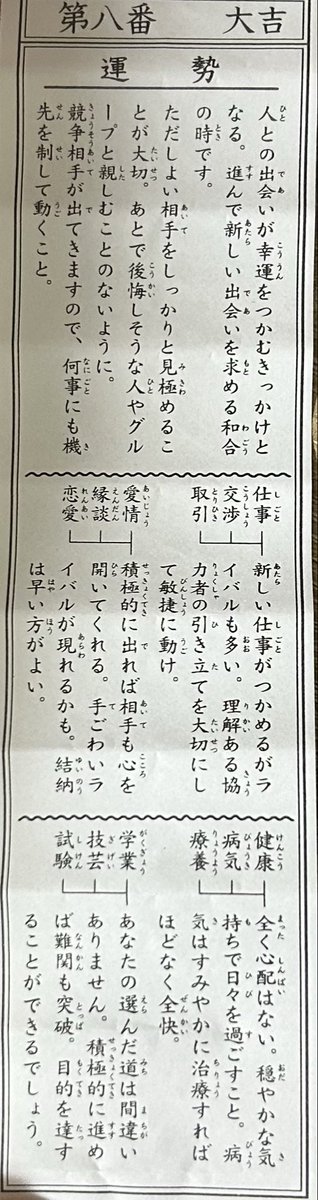 第八番　大吉
運勢
人との出会いが幸運をつかむきっかけと
なる。進んで新しい出会いを求める和合
の時です。
ただしよい相手をしっかりと見極めるこ
とが大切。あとで後悔しそうな人やグル
ープと親しむことのないように。
競争相手が出てきますので、何事にも機
先を制して動くこと。
仕事
交渉
取引
新しい仕事がつかめるがラ
イバルも多い。理解ある協
力者の引き立てを大切にし
て敏捷に動け。
愛情
縁談
恋愛
積極的に出れば相手も心を
開いてくれる。手ごわいラ
イバルが現れるかも。結納
は早い方がよい。
健康
病気
療養
全く心配はない。穏やかな気
持ちで日々を過ごすこと。病
気はすみやかに治療すれば
ほどなく全快。
学業
技芸
試験
あなたの選んだ道は間違い
ありません。積極的に進め
ば難関も突破。目的を達す
ることができるでしょう。